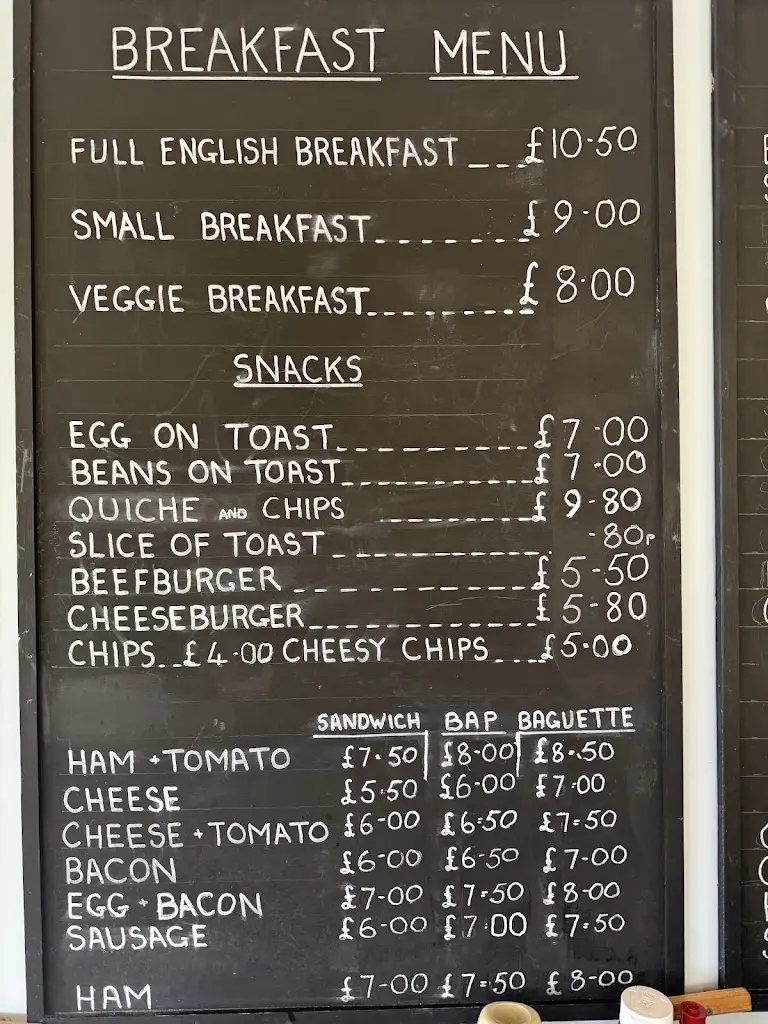 BREAKFAST MENU
FULL ENGLISH BREAKFAST ___£10-50
SMALL BREAKFAST.......£9-00
VEGGIE BREAKFAST.......£8-00
SNACKS
EGG ON TOAST..........£7-00
BEANS ON TOAST..........£7-00
QUICHE AND CHIPS ..........£9-80
SLICE OF TOAST..........-80p
BEEFBURGER..........£5-50
CHEESEBURGER..........£5-80
CHIPS..£4-00 CHEESY CHIPS...£5-00
SANDWICH BAP BAGUETTE
HAM + TOMATO £7-50 £8-00 £8-50
CHEESE £5-50 £6-00 £7-00
CHEESE + TOMATO £6-00 £6-50 £7-50
BACON £6-00 £6-50 £7-00
EGG + BACON £7-00 £7-50 £8-00
SAUSAGE £6-00 £7-00 £7-50
HAM £7-00 £7-50 £8-00